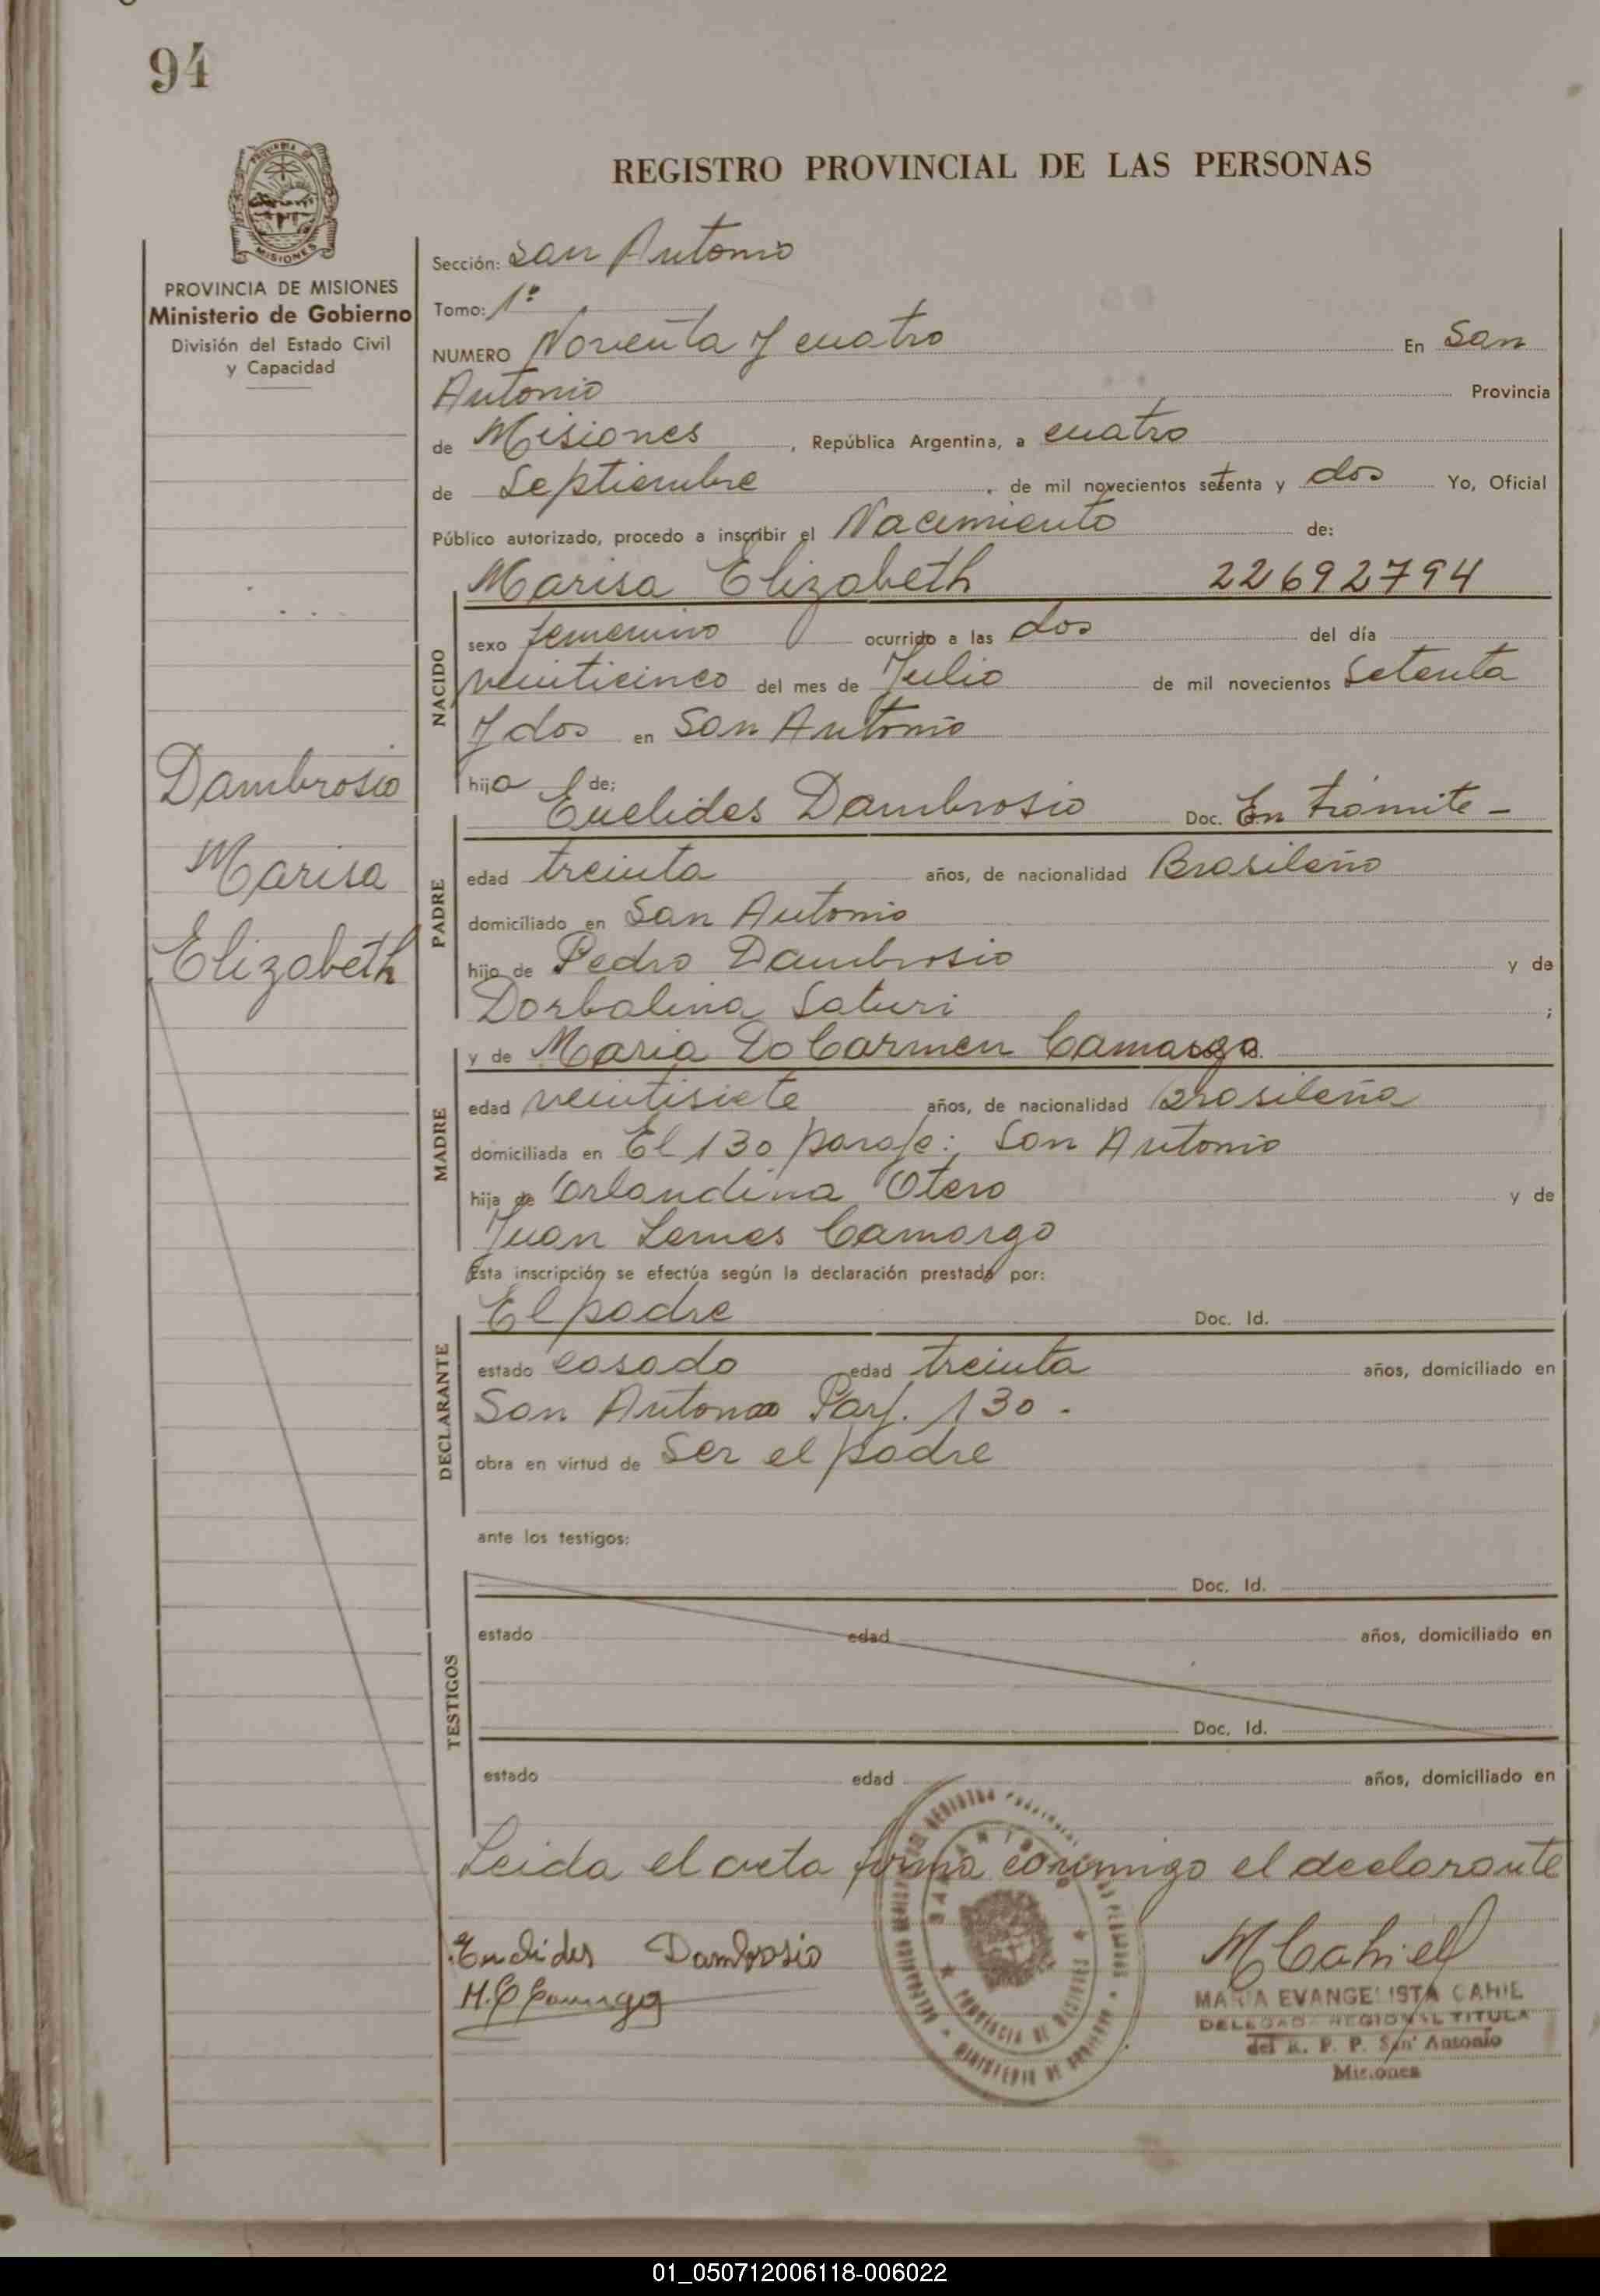 94
REGISTRO PROVINCIAL DE LAS PERSONAS
PROVINCIA DE MISIONES
Ministerio de Gobierno
División del Estado Civil
y Capacidad
Dambrosio
Marisa
Elizabeth
Sección: San Antonio
Tomo: 1º
NUMERO Noventa y cuatro En San
Antonio Provincia
de Misiones, República Argentina, a cuatro
de Septiembre, de mil novecientos setenta y dos Yo, Oficial
Público autorizado, procedo a inscribir el Nacimiento de:
NACIDO
Marisa Elizabeth 22692794
sexo femenino ocurrido a las dos del día
veinticinco del mes de Julio de mil novecientos Setenta
y dos en San Antonio
hija de:
PADRE
Euclides Dambrosio Doc. En trámite -
edad treinta años, de nacionalidad Brasileño
domiciliado en San Antonio
hijo de Pedro Dambrosio y de
Dorbalina Saturi ;
MADRE
y de Maria Do Carmen Camargo
edad veintisiete años, de nacionalidad Brasileña
domiciliada en El 130 paraje: San Antonio
hija de Orlandina Otero y de
Juan Lemes Camargo
Esta inscripción se efectúa según la declaración prestada por:
DECLARANTE
El padre Doc. Id.
estado casado edad treinta años, domiciliado en
San Antonio Parj. 130 -
obra en virtud de Ser el padre
ante los testigos:
TESTIGOS
Doc. Id.
estado edad años, domiciliado en
Doc. Id.
estado edad años, domiciliado en
Leida el acta firma conmigo el declarante
Euclides Dambrosio
M Cahiel
MARIA EVANGELISTA CAHIE
DELEGADA REGIONAL TITULA
del R. P. P. San Antonio
Misiones
PROVINCIA DE MISIONES
MINISTERIO DE GOBIERNO
01_050712006118-006022